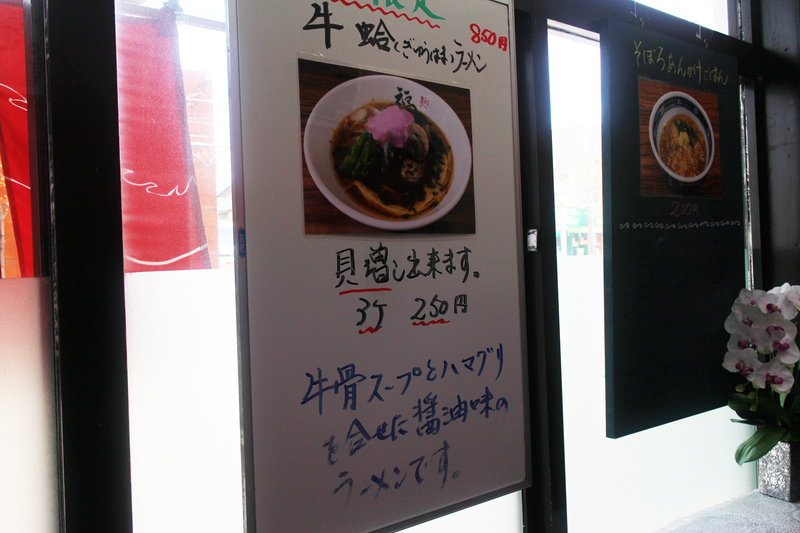 限定
牛蛤(ぎゅうはま)ラーメン
850円
福
貝増し出来ます。
3ケ 250円
牛骨スープとハマグリ
を合せた醤油味の
ラーメンです。
そぼろあんかけごはん
200円